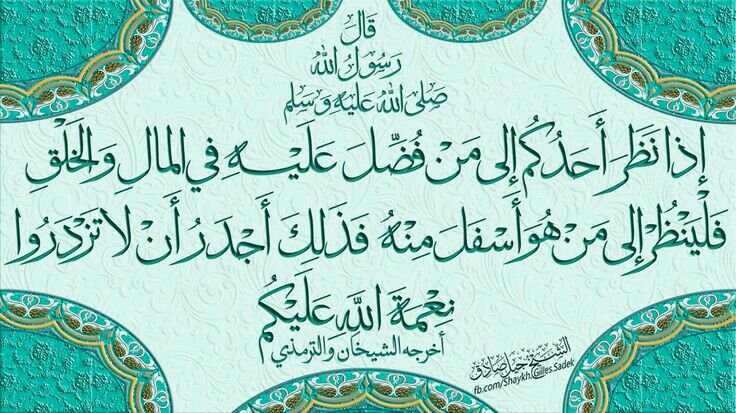 قَالَ
رَسُولُ اللهِ
صَلى اللهُ عَليْهِ وَسَلم
إِذَا نَظَرَ أَحَدُكُم إِلى مَنْ فُضِّلَ عَلَيْهِ فِي المَالِ وَالخَلْقِ
فَلْيَنْظُرْ إِلى مَنْ هُوَ أَسْفَلَ مِنْهُ فَذَلِكَ أَجْدَرُ أَنْ لا تَزْدَرُوا
نِعْمَةَ اللهِ عَلَيْكُم
أخرجه الشيخان والترمذي
الشيخ جيل صادق
fb.com/Shaykh.Gilles.Sadek